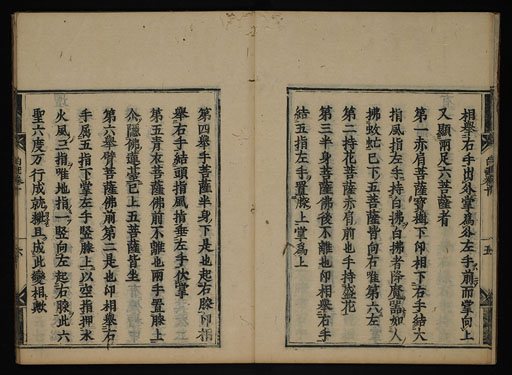 相舉右手出外掌爲外左手前而掌向上
又顯兩足六菩薩者
第一赤肩菩薩寶樹下仰相下右手結大
指風指左手持白拂白拂者降魔器如人
拂蚊虻已下五菩薩皆向右唯第六左
第二持花菩薩赤肩前也手持盛花
第三半身菩薩佛後不離也仰相舉右手
結五指左手置膝上掌爲上
第四舉手菩薩半身下是也起右膝仰指
舉右手結頭指風指垂左手伏掌
第五青衣菩薩佛前不離也兩手置膝上
隱佛蓮臺已上五菩薩皆坐
第六舉臂菩薩佛前第二是也仰相舉右
手屬五指下掌左手竪膝上以空指押水
火風三指唯地指一竪向左起右膝此六
聖六度万行成就故且成此變相歟